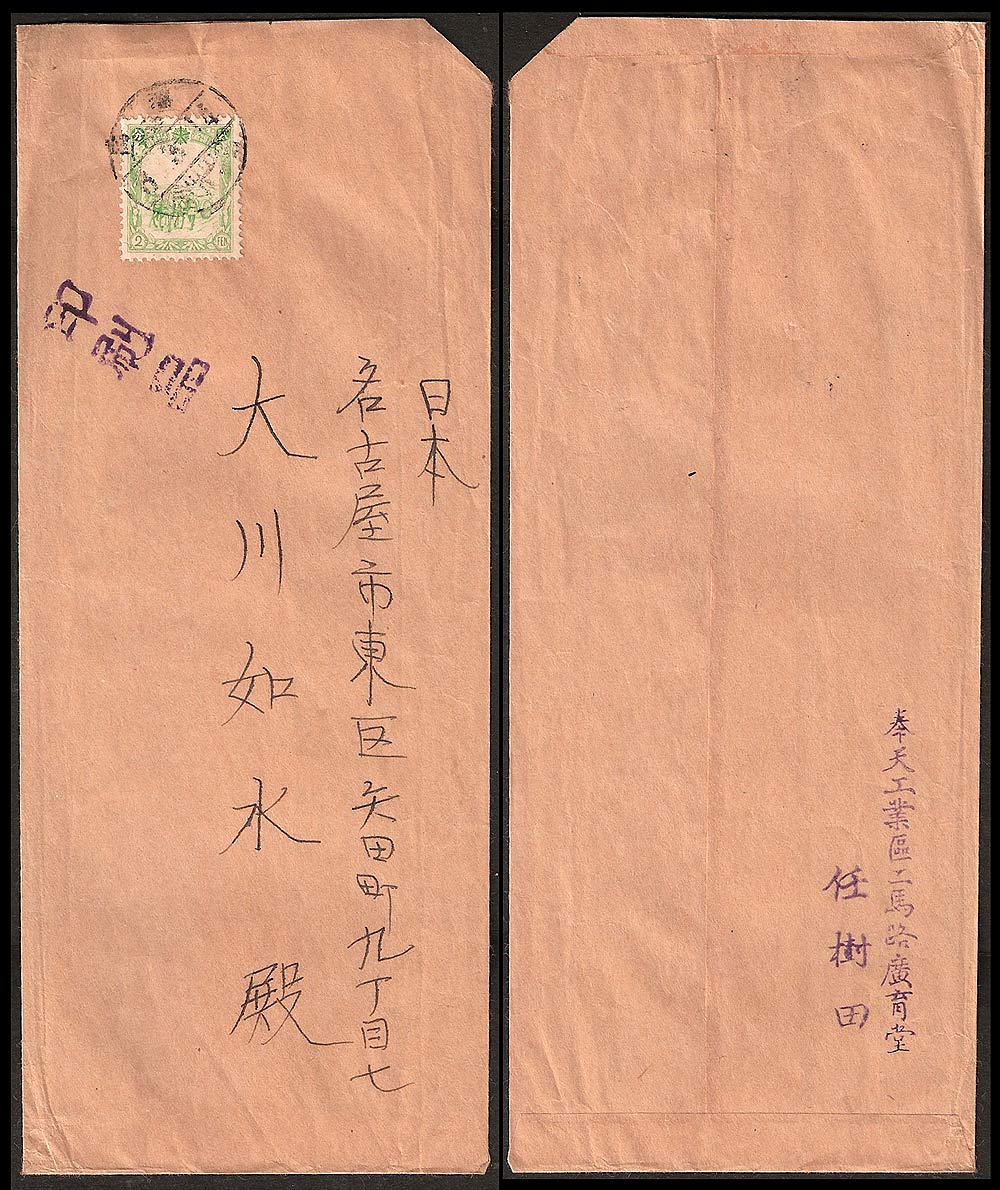 2 FEN
印刷品
日本
名古屋市東区矢田町九丁目七
大川如水殿
奉天工業區二馬路廣育堂
任樹田